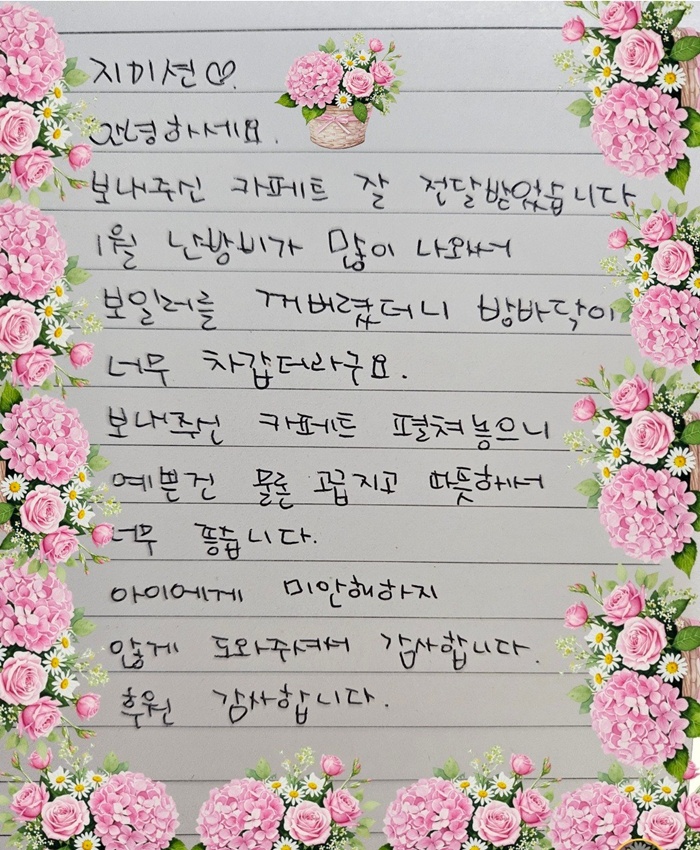 지미션♡.
안녕하세요.
보내주신 카페트 잘 전달받았습니다
1월 난방비가 많이 나와서
보일러를 꺼버렸더니 방바닥이
너무 차갑더라구요.
보내주신 카페트 펼쳐놓으니
예쁜건 물론 고급지고 따뜻해서
너무 좋습니다.
아이에게 미안해하지
않게 도와주셔서 감사합니다.
후원 감사합니다.